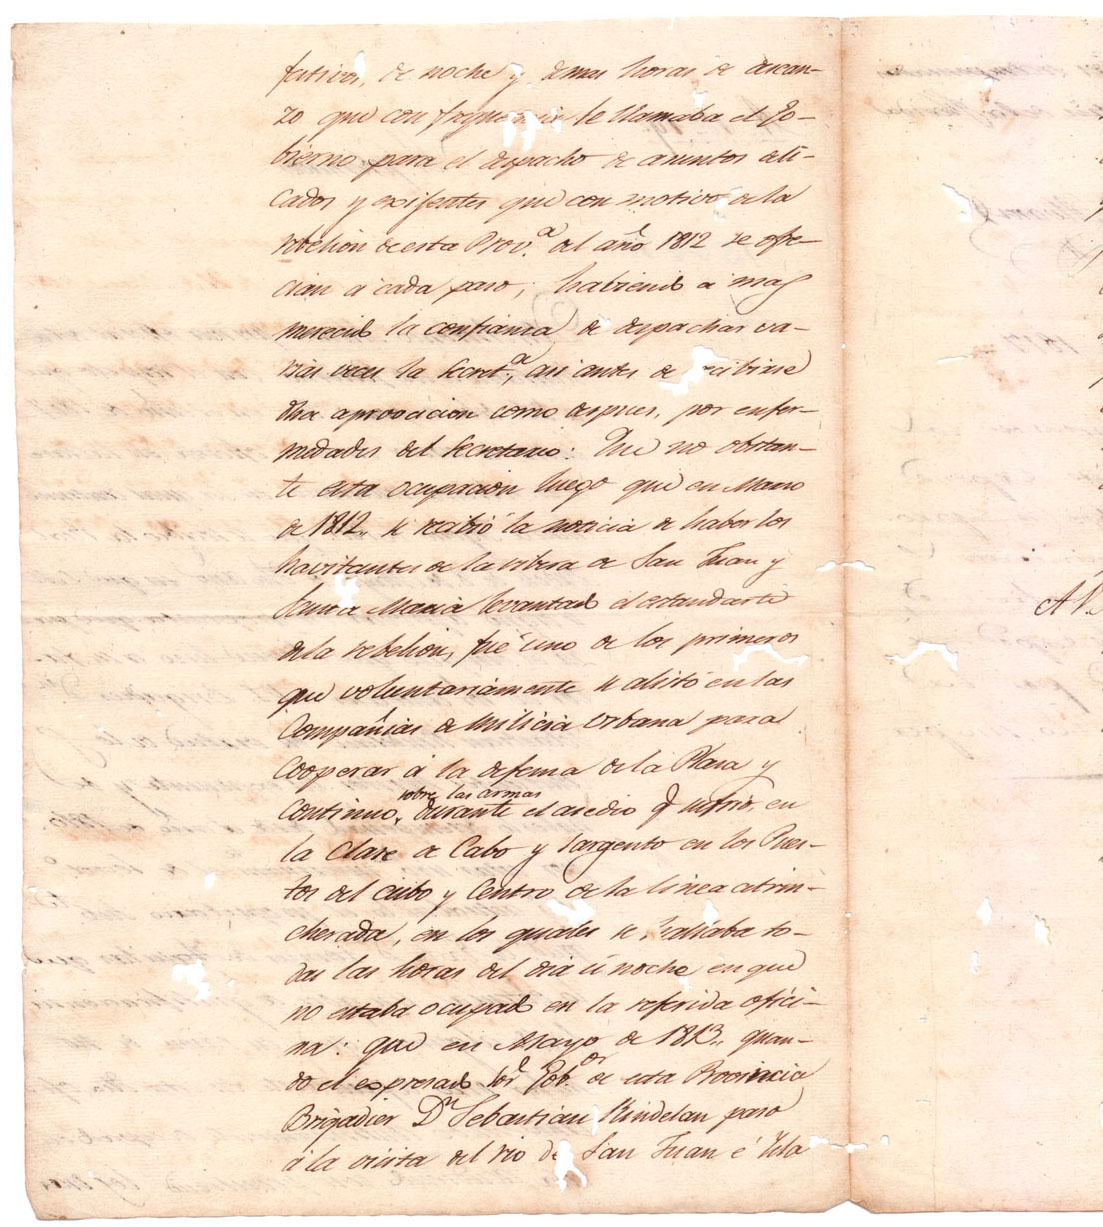 festivos, de noche y demas horas de descan-
zo que con freqüencia se llamaba el Go-
bierno para el despacho de asuntos deli-
cados y exijentes que con motivo de la
rebelion de esta Prov.ª del año 1812 se ofre-
cian á cada paso; habiendo a mas
merecido la confianza de despachar va-
rias veces la Secret.ª, asi antes de recibirse
dha aprovacion como despues, por enfer-
medades del Secretario: Que no obstan-
te esta ocupacion luego que en Marzo
de 1812,, se recibió la noticia de haber los
havitantes de la rivera de San Juan y
Santa Maria levantado el estandarte
de la rebelion, fué uno de los primeros
que voluntariamente se alistó en las
Compañias de Milicia Urbana para
cooperar á la defensa de la Plaza y
continuo, sobre las armas durante el asedio q sufrio, en
la clase de Cabo y Sargento en los Pues-
tos del cubo y Centro de la linea atrin-
cherada, en los quales se hallaba to-
das las horas del dia ú noche en que
no estaba ocupado en la referida ofici-
na: que en Mayo de 1813,, quan-
do el expresado Sor Gob.or de esta Provincia
Brigadier Dn Sebastian Kindelan paso
á la visita del rio de San Juan é Isla